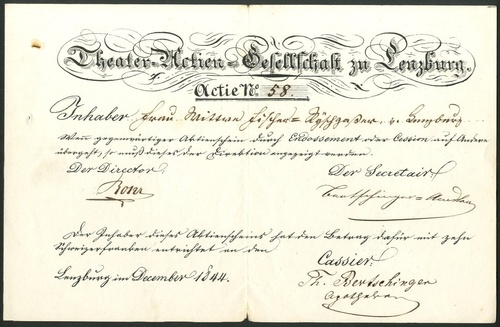 Theater-Actien-Gesellschaft zu Lenzburg.
Actie No. 58.
Inhaber Frau Wittwe Fischer= v. Lenzburg
Wenn gegenwärtiger Aktienschein durch Endossement oder Cession auf Andere
übergeht, so muß dieses der Direktion angezeigt werden.
Der Director Der Secretair
Rohr Bertschinger=
Der Inhaber dieses Aktienscheins hat den Betrag dafür mit zehn
Schweizerfranken entrichtet an den
Cassier:
Lenzburg im December 1844. Th. Bertschinger
Apotheker